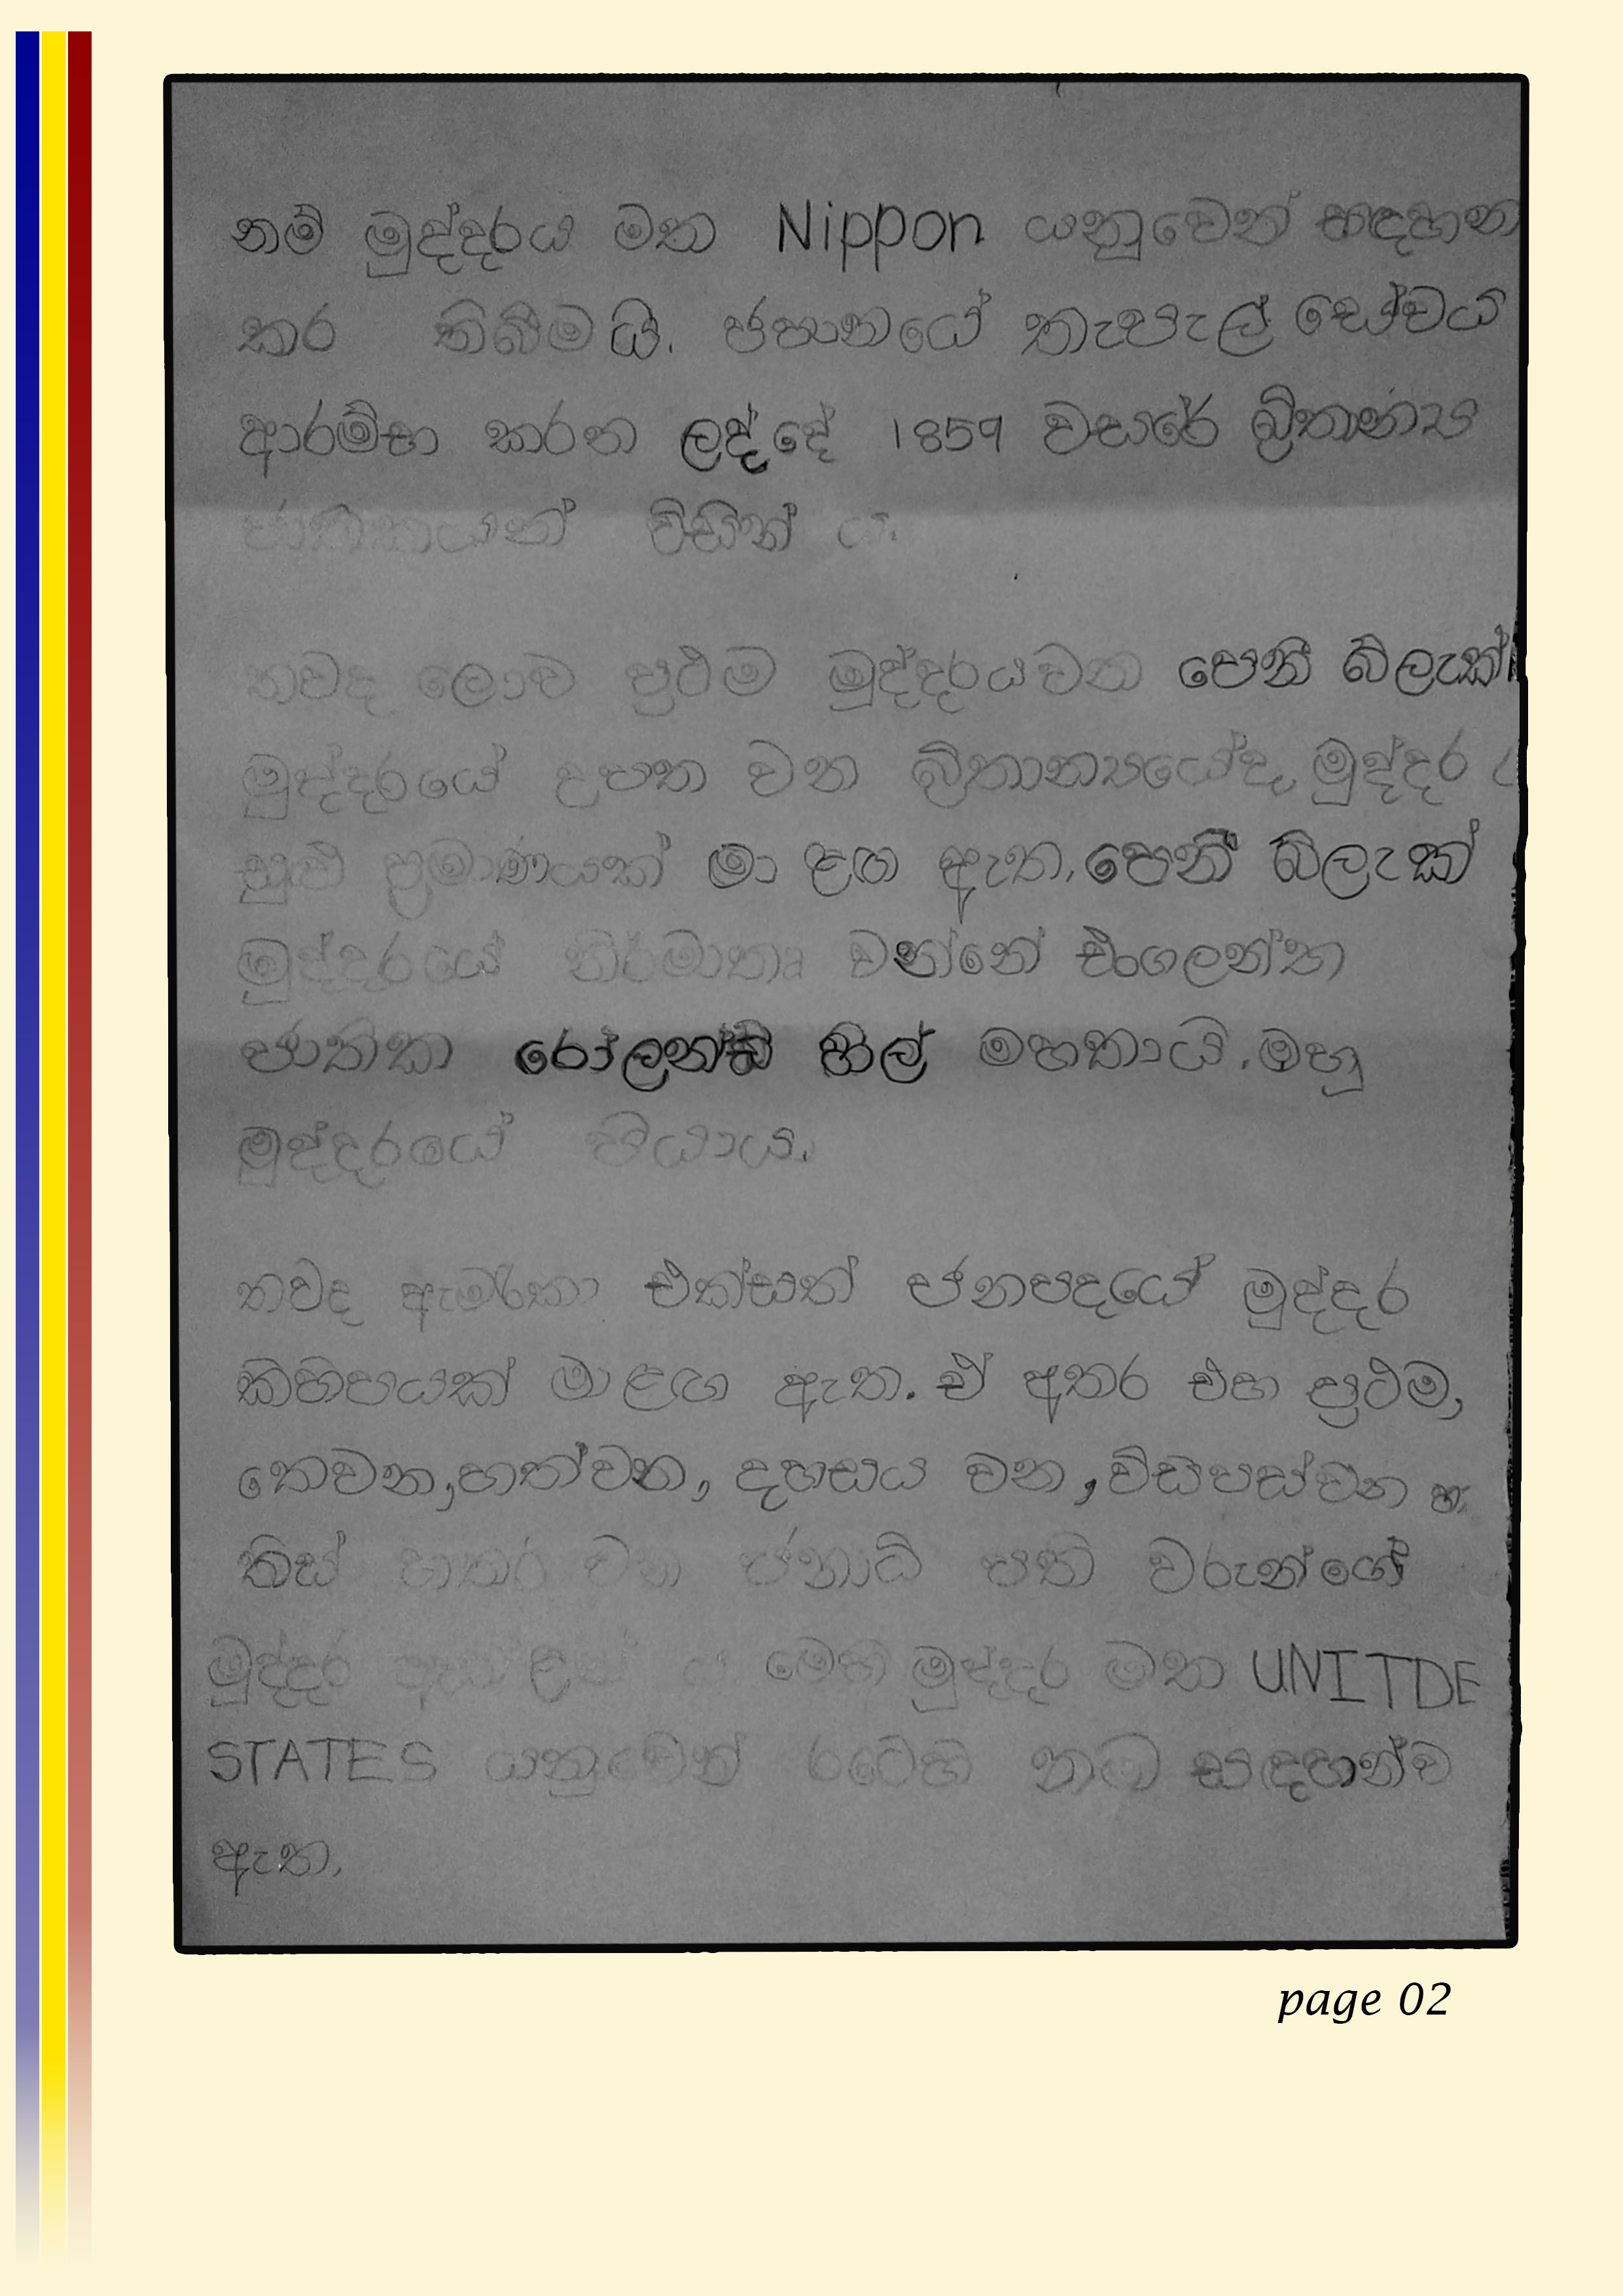 නම් මුද්දරය මත Nippon යනුවෙන් සඳහන
කර තිබීමයි. ජපානයේ තැපැල් සේවය
ආරම්භ කරන ලද්දේ 1859 වසරේ බ්‍රිතාන්‍ය
ජාතිකයන් විසින් ය.
තවද ලොව ප්‍රථම මුද්දරයවන පෙනී බ්ලැක්
මුද්දරයේ උපත වන බ්‍රිතාන්‍යයේද, මුද්දර
සුළු ප්‍රමාණයක් මා ළඟ ඇත. පෙනී බ්ලැක්
මුද්දරයේ නිර්මාතෘ වන්නේ එංගලන්ත
ජාතික රෝලන්ඩ් හිල් මහතායි. ඔහු
මුද්දරයේ පියාය.
තවද ඇමරිකා එක්සත් ජනපදයේ මුද්දර
කිහිපයක් මා ළඟ ඇත. ඒ අතර එහ ප්‍රථම,
තෙවන, හත්වන, දහසය වන, විසිපස්වන හා
තිස් හතර වන ජනාධි පති වරුන්ගේ
මුද්දර මෙහි මුද්දර මත UNITDE
STATES යනුවෙන් රටෙහි නම සඳහන්ව
ඇත.
page 02